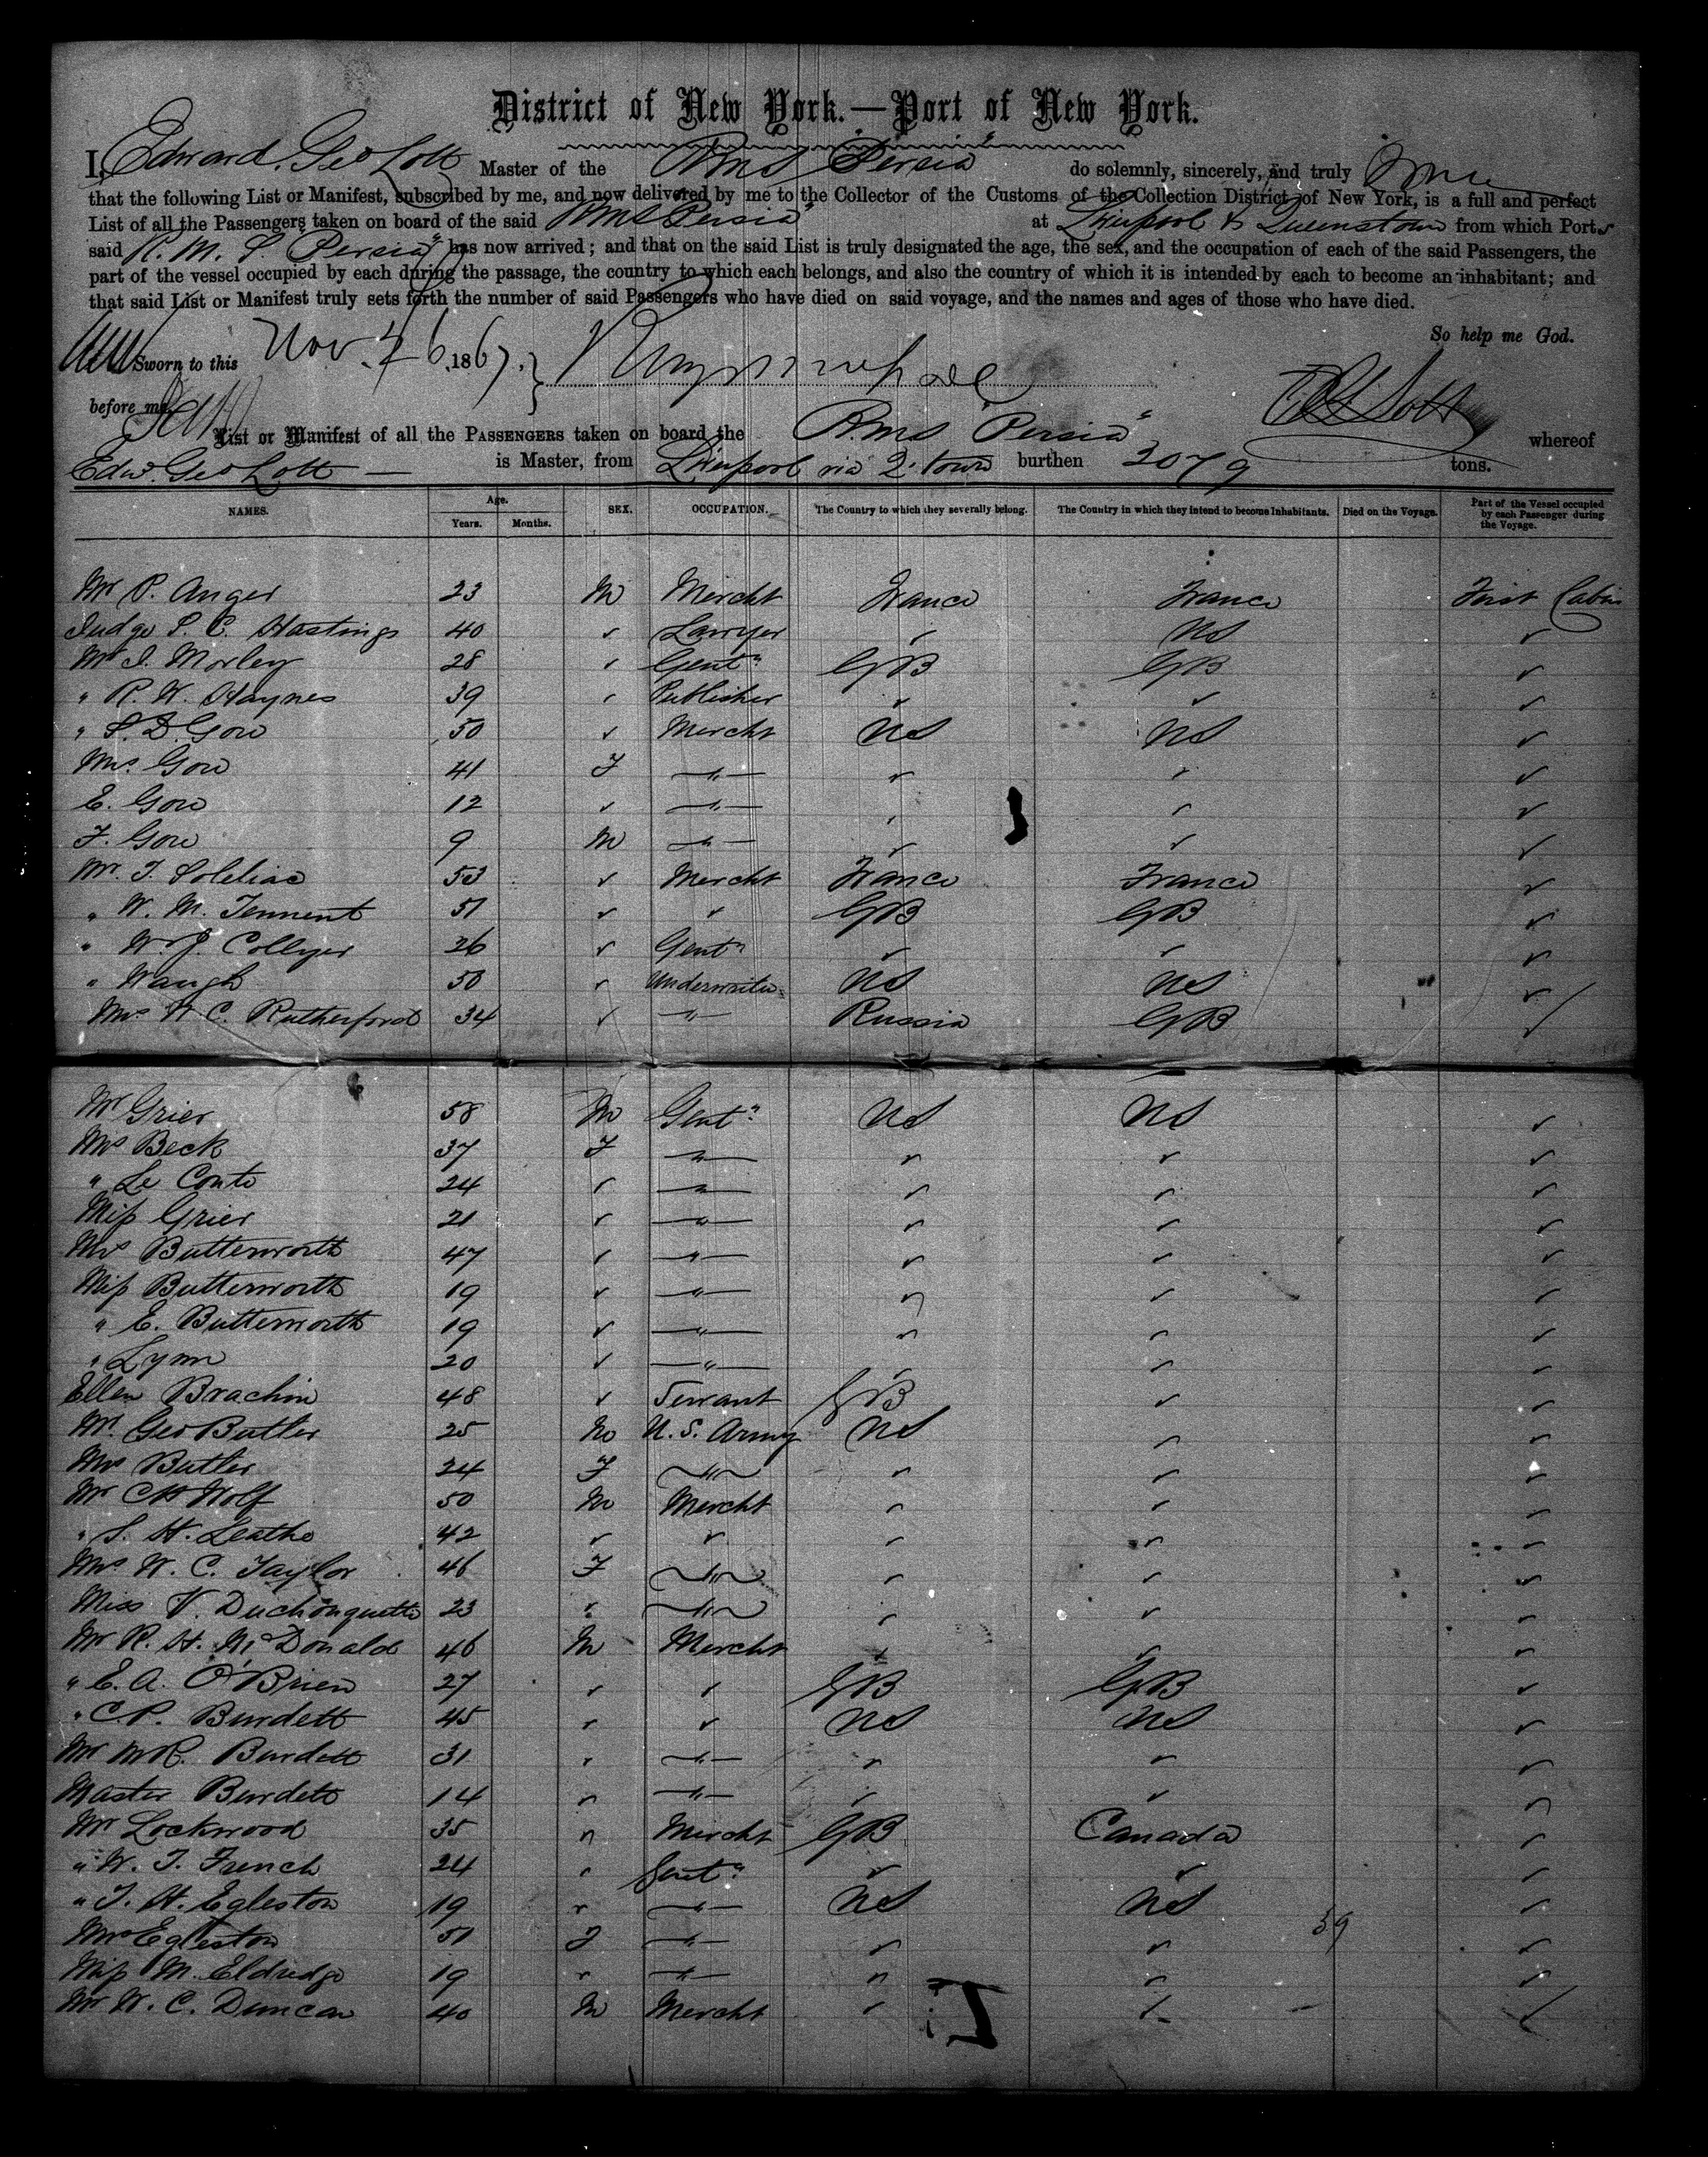 District of New York.—Port of New York.
I, Edward Geo Lott Master of the "RMS Persia" do solemnly, sincerely, and truly
that the following List or Manifest, subscribed by me, and now delivered by me to the Collector of the Customs of the Collection District of New York, is a full and perfect
List of all the Passengers taken on board of the said RMS Persia" at Liverpool & Queenstown from which Ports
said R. M. S. Persia" has now arrived; and that on the said List is truly designated the age, the sex, and the occupation of each of the said Passengers, the
part of the vessel occupied by each during the passage, the country to which each belongs, and also the country of which it is intended by each to become an inhabitant; and
that said List or Manifest truly sets forth the number of said Passengers who have died on said voyage, and the names and ages of those who have died.
So help me God.
Sworn to this Nov. 26 1867.
before me
List or Manifest of all the PASSENGERS taken on board the R.M.S "Persia" whereof
Edwd. Geo Lott — is Master, from Liverpool via Q.town burthen 2079 tons.
NAMES. Age. Years. Months. SEX. OCCUPATION. The Country to which they severally belong. The Country in which they intend to become Inhabitants. Died on the Voyage. Part of the Vessel occupied by each Passenger during the Voyage.
Mr P. Anger 23 M Mercht France France First Cabin
Judge S. C. Hastings 40 ✓ Lawyer ✓ US ✓
Mr I. Morley 28 ✓ Gentn GB GB ✓
" R. W. Haynes 39 ✓ Publisher ✓ ✓ ✓
" S. D. Gow 50 ✓ Mercht US US ✓
Mrs. Gow 41 F —"— ✓ ✓ ✓
E. Gow 12 ✓ —"— ✓ ✓ ✓
F. Gow 9 M —"— ✓ ✓ ✓
Mr. T. Soleliac 53 ✓ Mercht France France ✓
" W. M. Tennent 51 ✓ ✓ GB GB ✓
" W. J. Collyer 26 ✓ Gentn ✓ ✓ ✓
" Waugh 50 ✓ Underwriter US US ✓
Mrs W C. Rutherford 34 ✓ —"— Russia GB ✓
Mr Grier 58 M Gentn US US ✓
Mrs Beck 37 F —"— ✓ ✓ ✓
" Le Conte 24 ✓ —"— ✓ ✓ ✓
Miss Grier 21 ✓ —"— ✓ ✓ ✓
Mrs Butterworth 47 ✓ —"— ✓ ✓ ✓
Miss Butterworth 19 ✓ —"— ✓ ✓ ✓
" E. Butterworth 19 ✓ —"— ✓ ✓ ✓
" Lynn 20 ✓ —"— ✓ ✓ ✓
Ellen Brachin 48 ✓ Servant GB ✓ ✓
Mr. Geo Butler 25 M U.S. Army US ✓ ✓
Mrs Butler 24 F —"— ✓ ✓ ✓
Mr CH Wolf 50 M Mercht ✓ ✓ ✓
" S. H. Leathe 42 ✓ ✓ ✓ ✓ ✓
Mrs W. C. Taylor 46 F —"— ✓ ✓ ✓
Miss V. Duchonquette 23 ✓ —"— ✓ ✓ ✓
Mr R. H. McDonald 46 M Mercht ✓ ✓ ✓
" E. A. O'Brien 27 ✓ ✓ GB GB ✓
" C.P. Burdett 45 ✓ ✓ US US ✓
Mr. Burdett 31 ✓ —"— ✓ ✓ ✓
Master Burdett 14 ✓ —"— ✓ ✓ ✓
Mr Lockwood 35 ✓ Mercht GB Canada ✓
" W. T. French 24 ✓ Gentn ✓ ✓ ✓
" T. H. Egleston 19 ✓ —"— US US ✓
Mrs Egleston 51 F —"— ✓ ✓ 39 ✓
Miss M. Eldredge 19 ✓ —"— ✓ ✓ ✓
Mr W. C. Duncan 40 M Mercht ✓ ✓ ✓